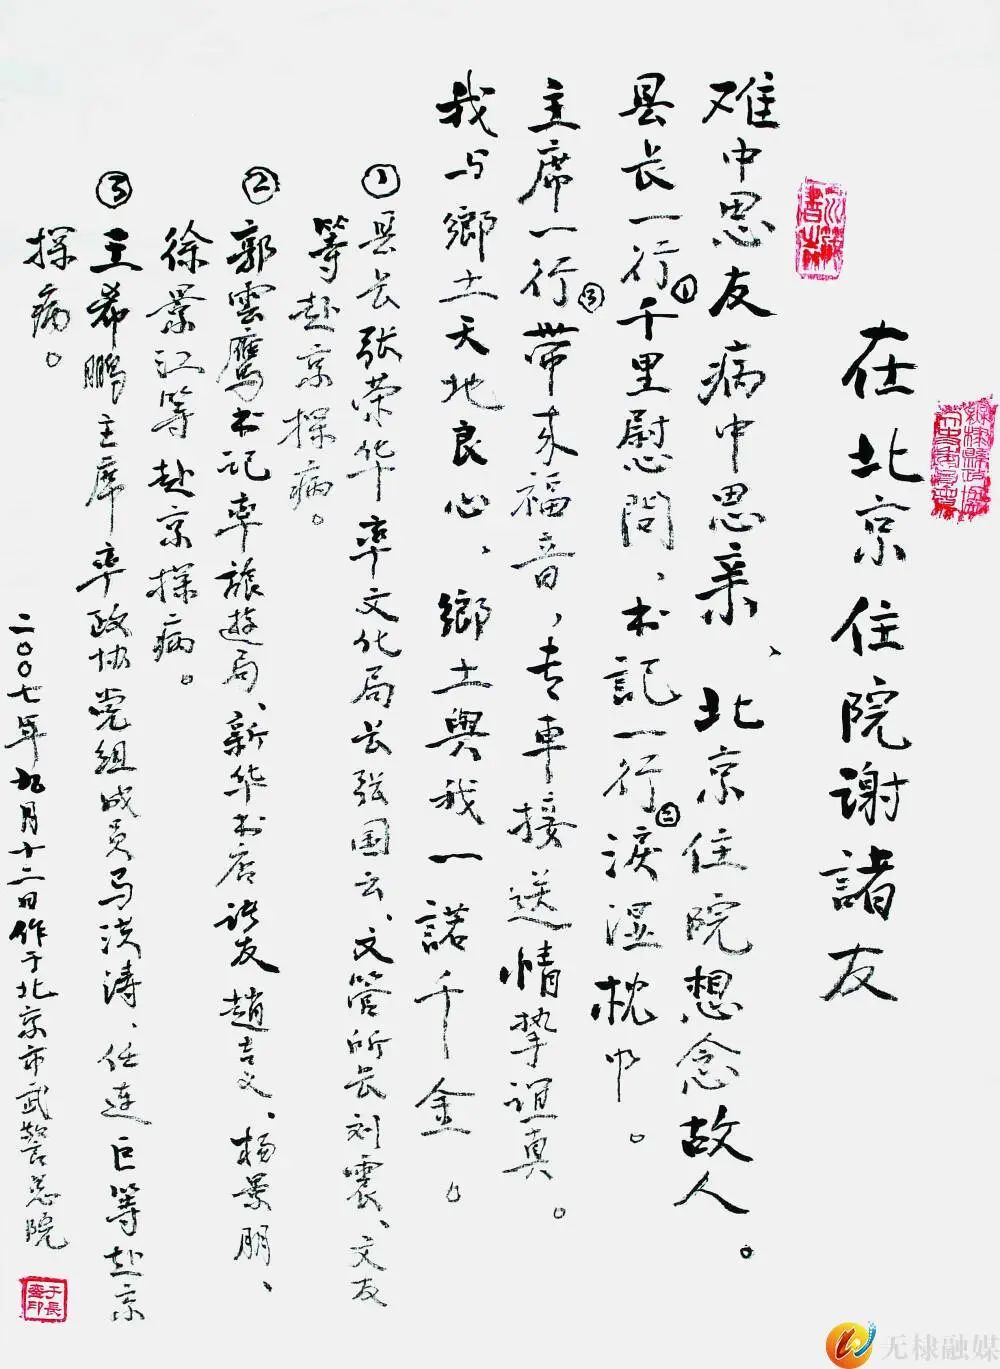 在北京住院谢諸友
难中思友病中思亲、北京住院想念故人。
县长一行①千里慰問、书記一行②淚湿枕巾。
主席一行③带来福音，专車接送情挚谊真。
我与鄉土天地良心、鄉土與我一諾千金。
①县长张荣华率文化局长张国云、文管所长刘震、文友
等赴京探病。
②郭雲鹰书记率旅遊局、新华书店諸友趙吉文、杨景朋、
徐景江等赴京探病。
③王希鹏主席率政协党组成员马洪涛、任连巨等赴京
探病。
二00七年九月十二日作于北京市武警总院
于長銮印
无棣融媒